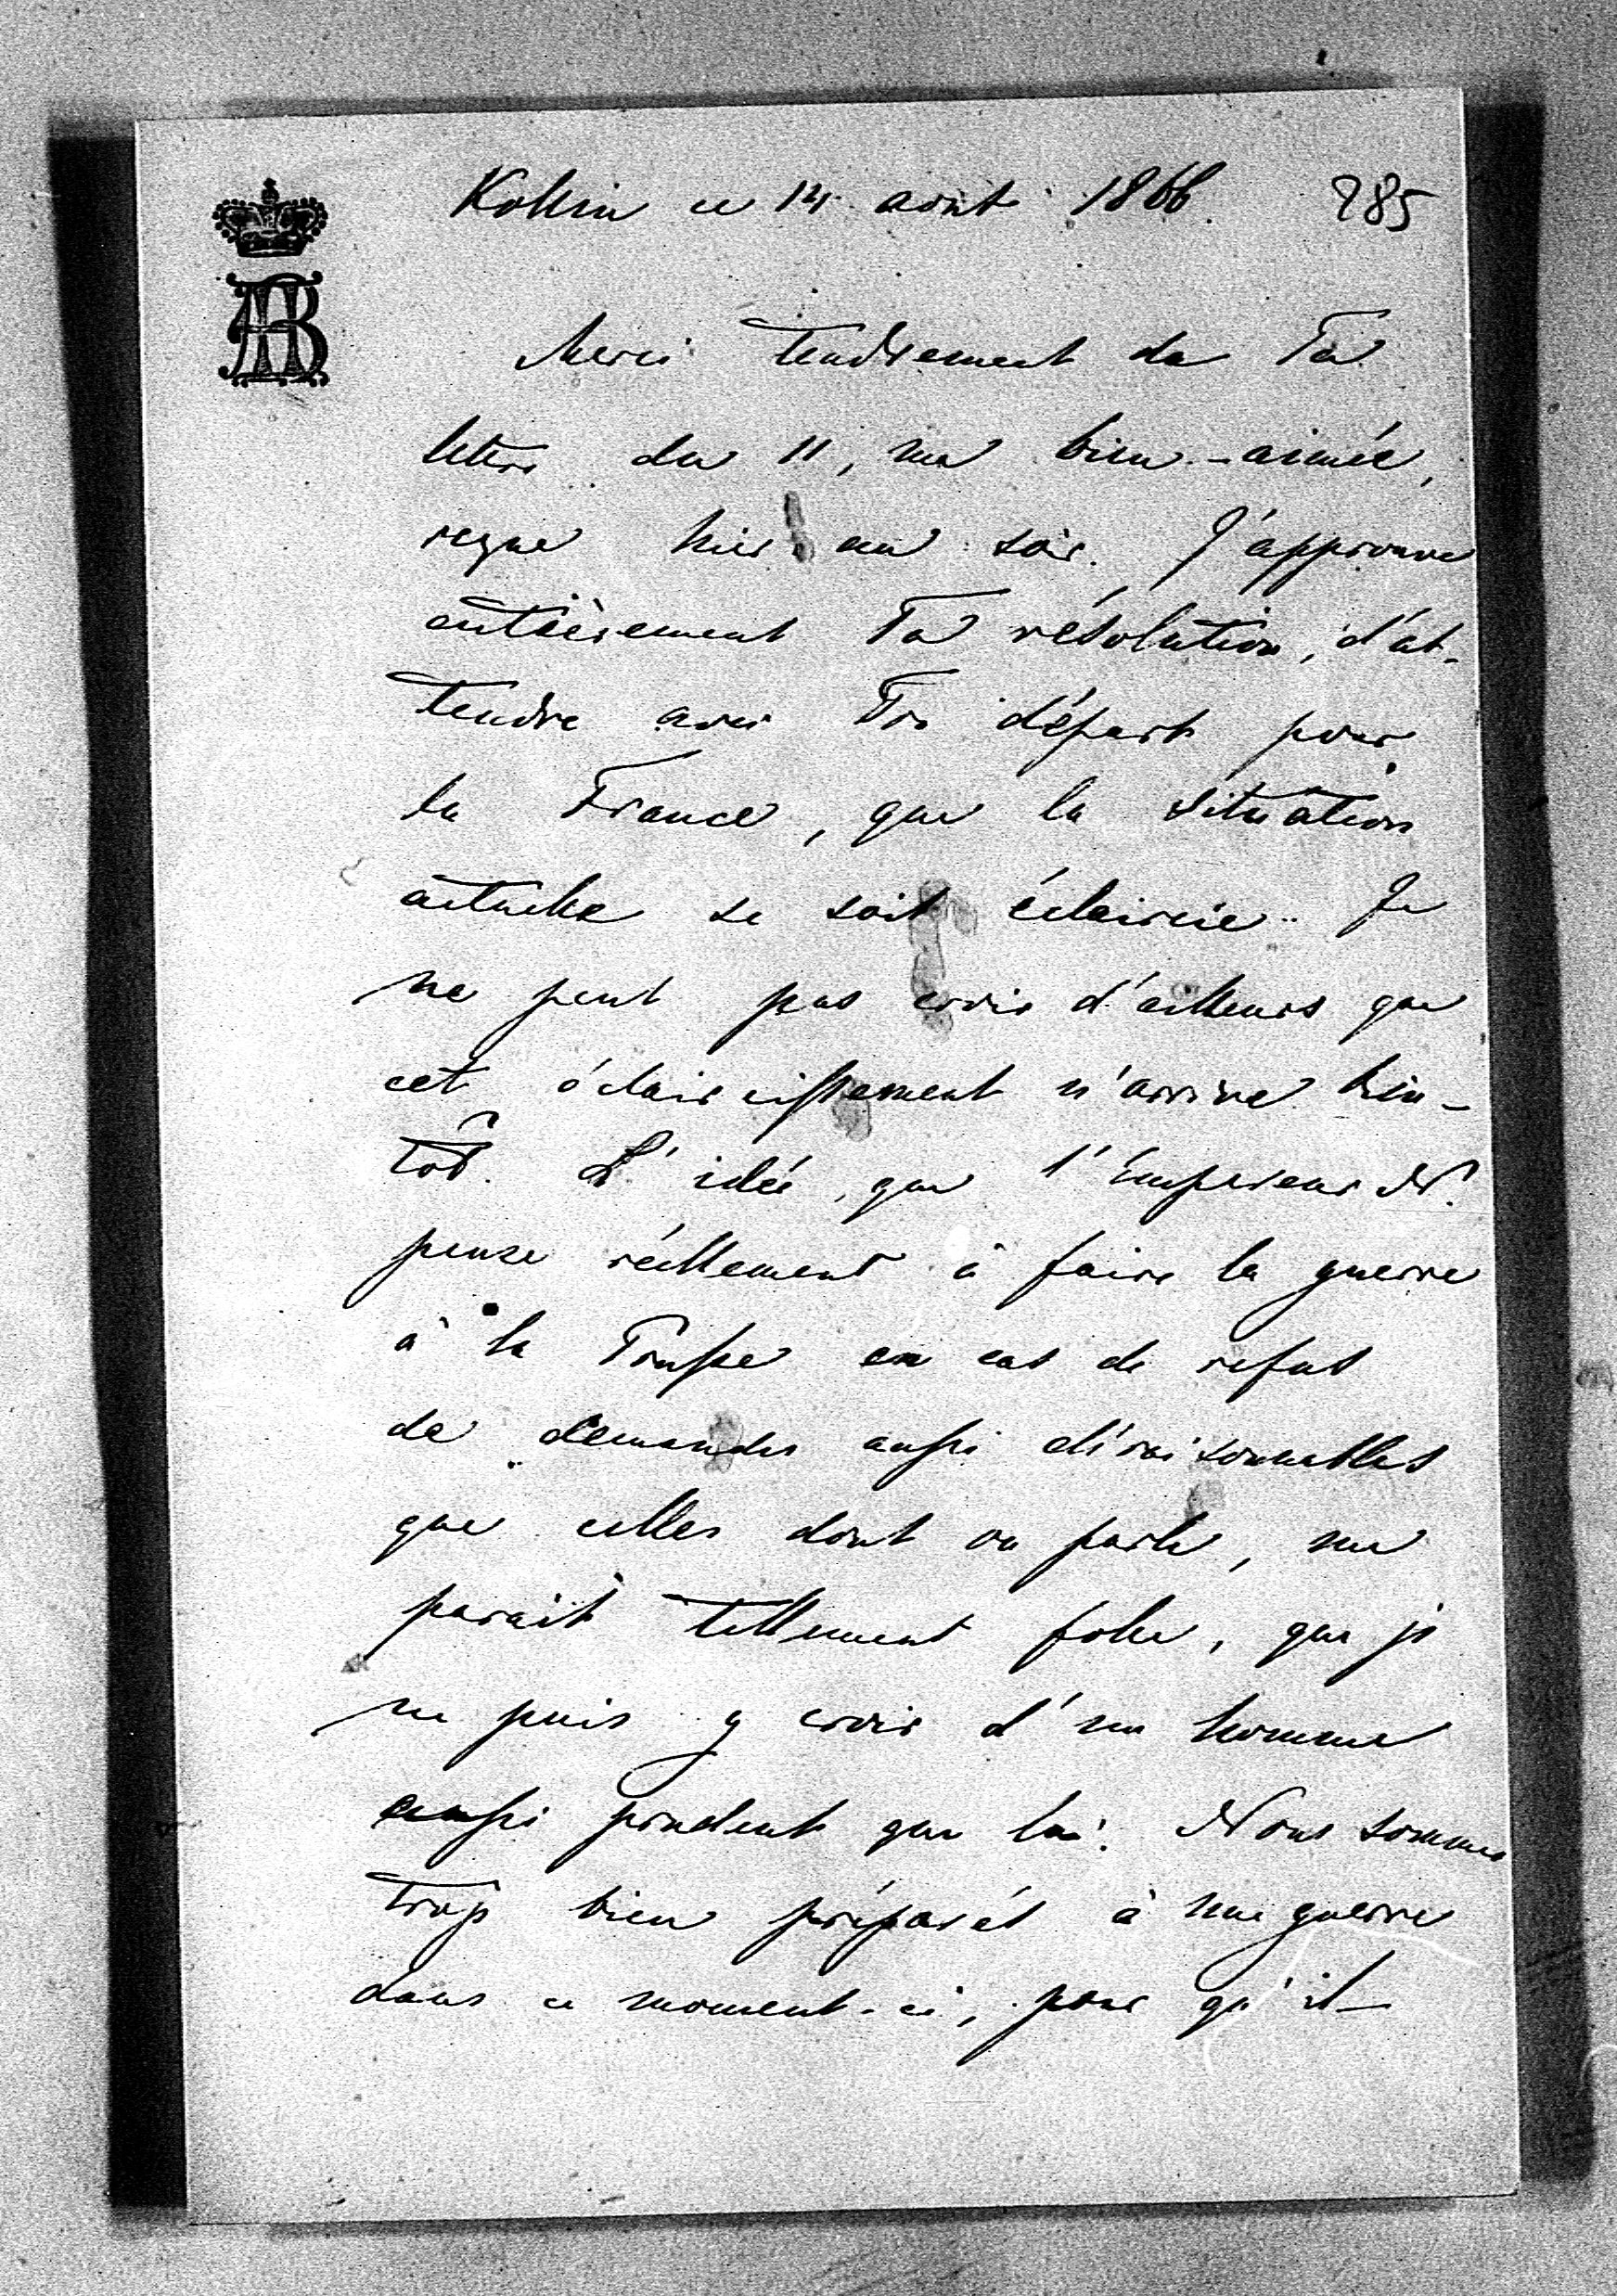 Kollin ce 14 août 1866. 285
AB
Merci tendrement de Ta
lettre du 11, ma bien-aimée,
reçue hier au soir. J'approuve
entièrement Ta résolution, d'at-
tendre avec Ton départ pour
la France, que la situation
actuelle se soit éclaircie. Je
ne peut pas croir d'ailleurs que
cet éclaircissement n'arrive bien-
tôt. L'idée, que l'Empereur N.
pense réellement à faire la guerre
à la Prusse en cas de refus
de demandes aussi déraisonnables
que celles dont on parle, me
parait tellement folle, que je
ne puis y croir d'un homme
aussi prudent que lui. Nous sommes
trop bien préparés à une guerre
dans ce moment-ci, pour qu'il